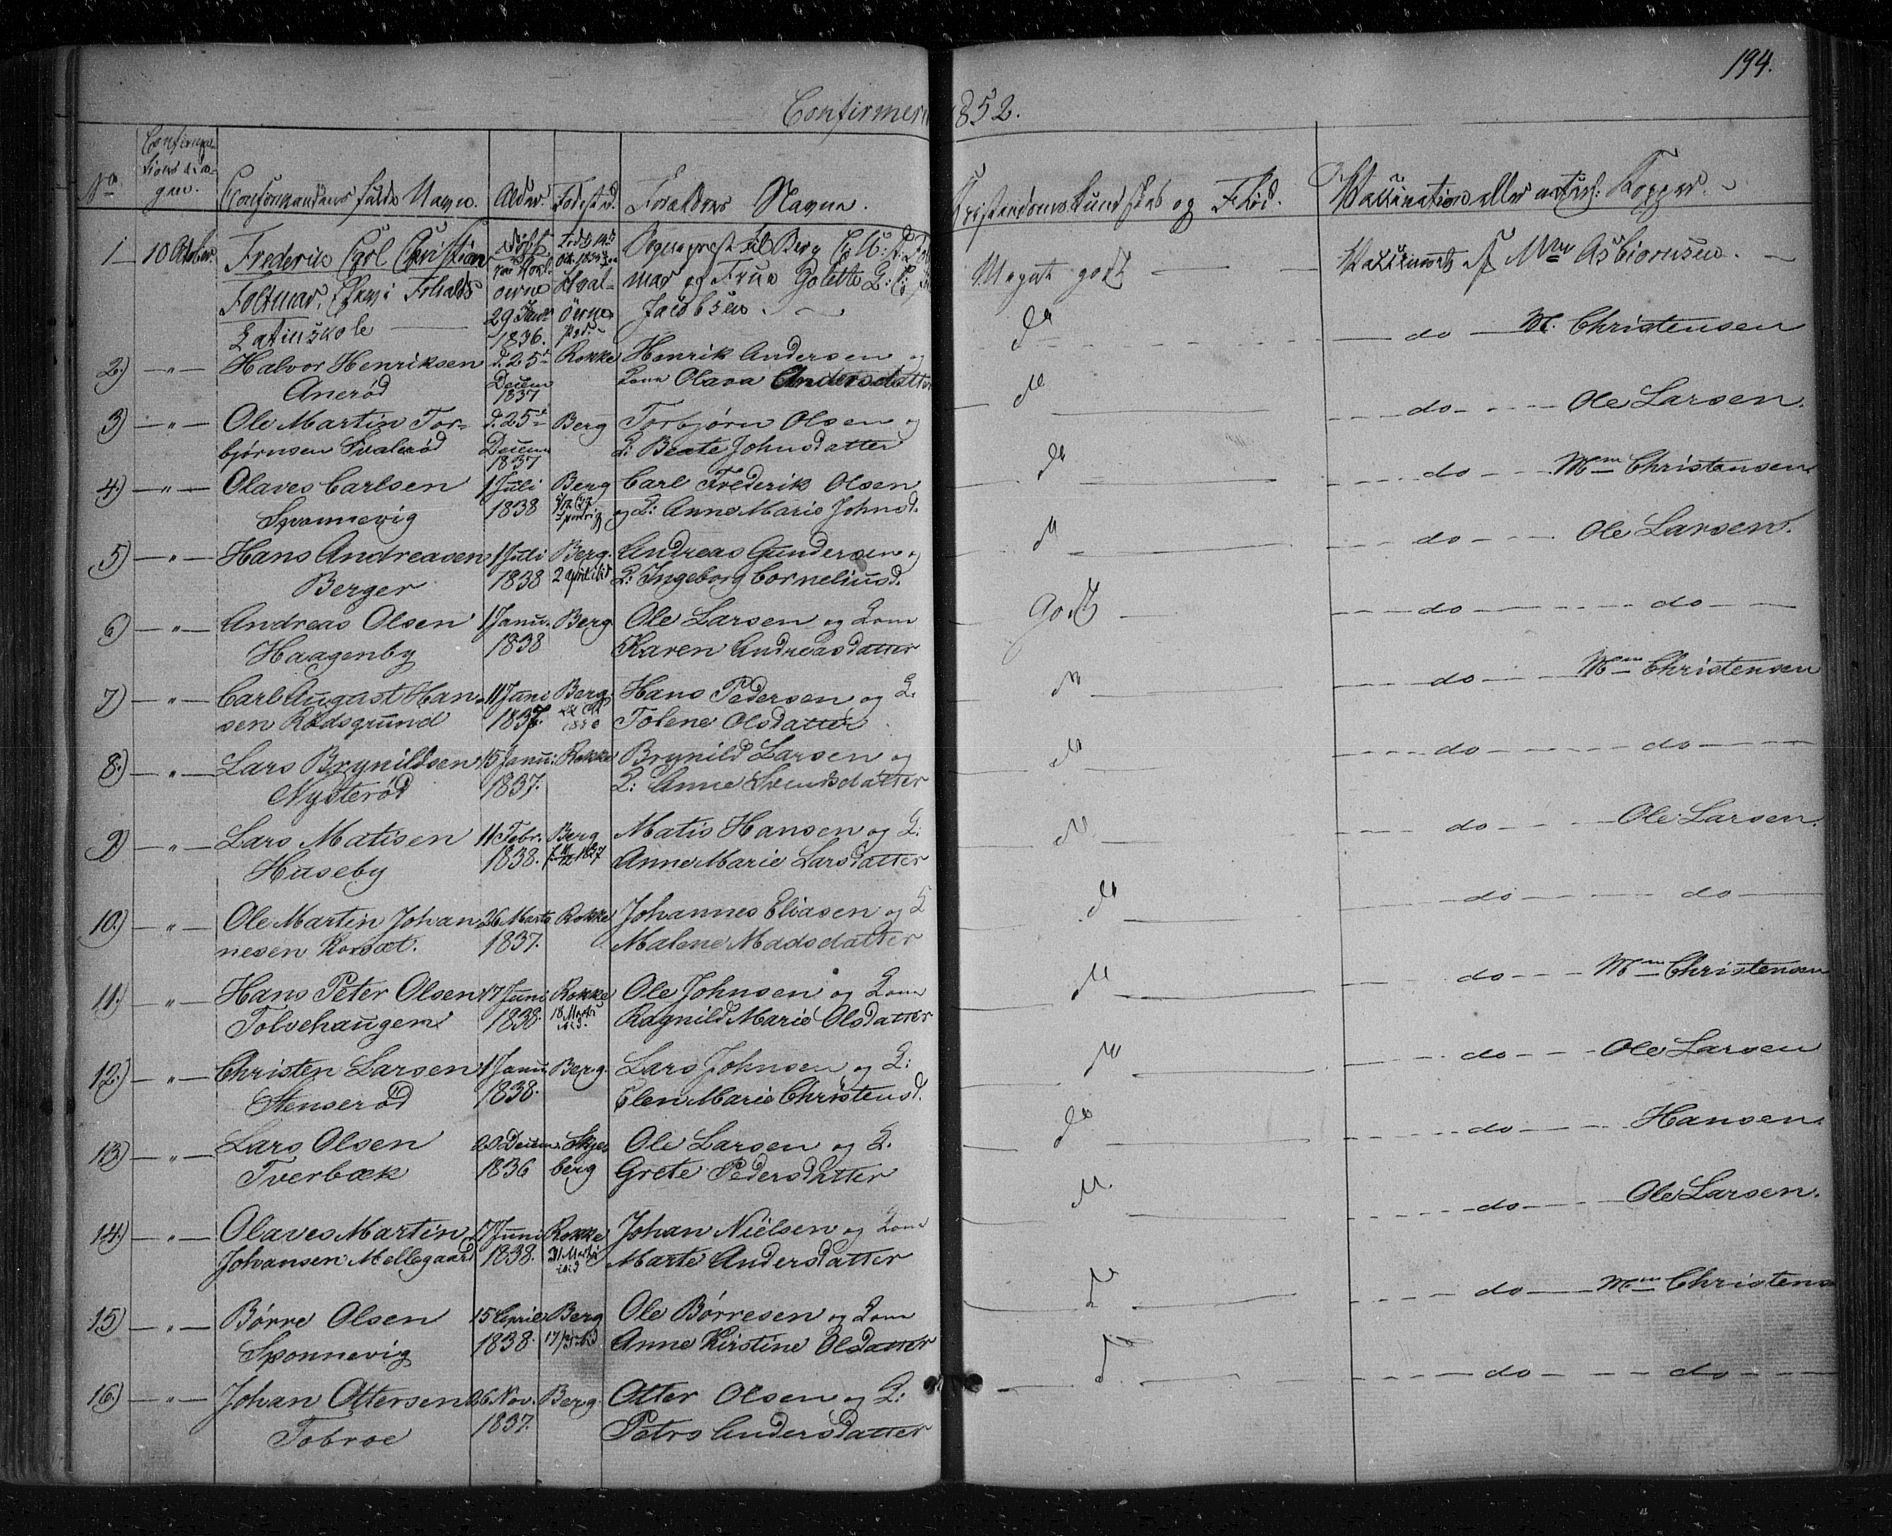 194.
Confirmer 1852.
No
Confirma-
tions da-
gen.
Confirmandens fulde Navn.
Alder.
Fødested.
Forældres Navne.
Kristendoms Kundskab og Flid.
Vaccination eller naturl: Kopper.
1 10 October Frederic Carl Christian
Foltmar,
Latinskole
29 Janr
1836.
Sogneprest til Berg
mar og Frue
Jacobsen.
Meget godt
Vaccineret af Asbiørnsen.
2.) — " — Halvor Henriksen d. 25 Rokke Henrik Andersen og
Anerød Decem 1837 Kone Olava Andersdatter
do do M. Christensen
3) — " — Ole Martin Tor- d. 25 Berg Torbjørn Olsen og
bjørnsen Svalerød Decem 1837 K: Beate Johnsdatter
do do Ole Larsen.
4) — " — Olaves Carlsen 1 Juli Berg Carl Frederik Olsen
Sponnevig 1838 og K: Anne Marie Johnsd.
do do Mem Christensen
5) — " — Hans Andreasen 1 Juli Berg. Andreas Gundersen og
Berger 1838 K: Ingeborg Corneliusd.
do do Ole Larsen.
6) — " — Andreas Olsen 1 Janu. Berg Ole Larsen og Kone
Haagenby 1838 Karen Andreasdatter
Godt do do
7) — " — Carl August Han- Berg. Hans Pedersen og K
sen Rødsgrund 1837. Tolene Olsdatter
do do Mem Christensen
8.) — " — Lars Brynildsen 15 Janu: Rokke Brynild Larsen og
Nysterød 1837. K: Anne Svendsdatter
do do do
9) — " — Lars Matisen 11 Febr. Berg Matis Hansen og K:
Huseby 1838. Anne Marie Larsdatter
do do Ole Larsen.
10.) — " — Ole Martin Johan- 26 Marts Rokke Johannes Eliasen og K
nesen Korsæt. 1837. Malene Madsdatter
do do do
11.) — " — Hans Peter Olsen 17 Juni Rokke Ole Johnsen og Kone
Tolvehaugen 1838. Ragnild Marie Olsdatter
do do Mem Christensen
12.) — " — Christen Larsen 1 Janu Berg. Lars Johnsen og K:
Stenserød 1838. Elen Marie Christensd.
do do Ole Larsen
13.) — " — Lars Olsen 20 Decem. Skje- Ole Larsen og K.
Tverbæk 1836 berg Grete Pedersdatter
do do Hansen
14.) — " — Olaves Martin 17 Juni Rokke Johan Nielsen og Kone
Johansen Mellegaard 1838. Marte Andersdatter
do do Ole Larsen.
15) — " — Børre Olsen 15 April Berg Ole Børresen og Kone
Sponnevig 1838. Anne Kirstine Olsdatter
do do Mem Christens
16.) — " — Johan Ottersen 26 Nov. Berg. Otter Olsen og K:
Tobroe 1837. Petro Andersdatter
do do do